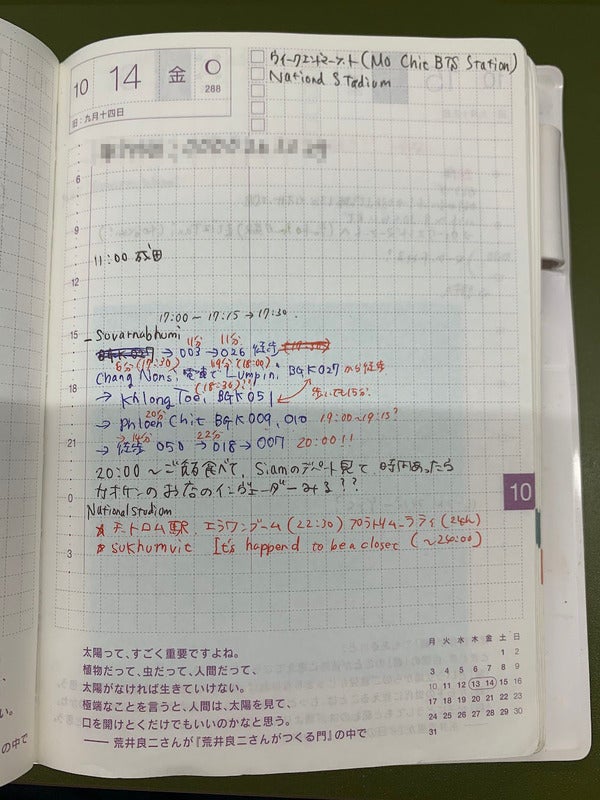 10 14 金
288
旧:九月十四日
ウィークエンドマーケット(Mo Chit BTS Station)
National Stadium
6
9
11:00 成田
12
17:00 ~ 17:15 → 17:30
15
Suvarnabhumi
11分 11分
→ 003 → 026 徒歩
6分(17:30) 19分(18:00)
Chang Nonsi 電車で Lumpini BGK027 から徒歩
(18:30)??
18
→ Khlong Toei BGK051 歩いても15分
20分
→ Phloen Chit BGK 009, 010 19:00~19:15?
→14分 22分
21
→ 徒歩 050 → 018 → 007 20:00!!
20:00~ご飯食べて、Siamのデパート見て 時間あったら
カオケンのお店のインヴェーダーみる??
0
National Studiom
駅 エラワンプーム(22:30) プラトゥムラティ(24h)
sukhumvit It's happend to be a closet (~24:00)
3
10
太陽って、すごく重要ですよね。
植物だって、虫だって、人間だって、
太陽がなければ生きていけない。
極端なことを言うと、人間は、太陽を見て、
口を開けとくだけでもいいのかなと思う。
—— 荒井良二さんが『荒井良二さんがつくる門』の中で
月 火 水 木 金 土 日
1 2
3 4 5 6 7 8 9
10 11 12 13 14 15 16
17 18 19 20 21 22 23
24 25 26 27 28 29 30
31
い。
の中で